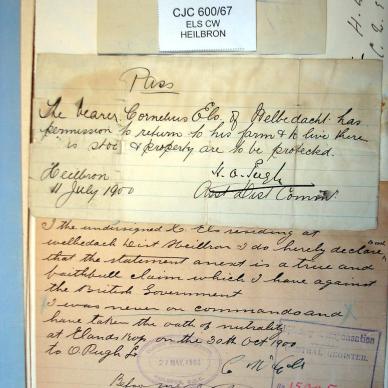 CJC 600/67
ELS CW
HEILBRON
Pass
The bearer Cornelius Els, of Welbedacht has
permission to return to his farm & to live there
is stock & property are to be protected.
Heilbron
11 July 1900
H. O. Pugh
Asst Dist Commr
I the undersigned C Els residing at
welbedach Dist Heilbron I do hereby declare
that the statement annext is a true and
faithbull claim which I have against
the British Government
I was never on commando and
have taken the oath of nutrality
at Elands Kop on the 30th Oct 1900
to O Pugh
Before me
27 MAY 1903
REGISTER.